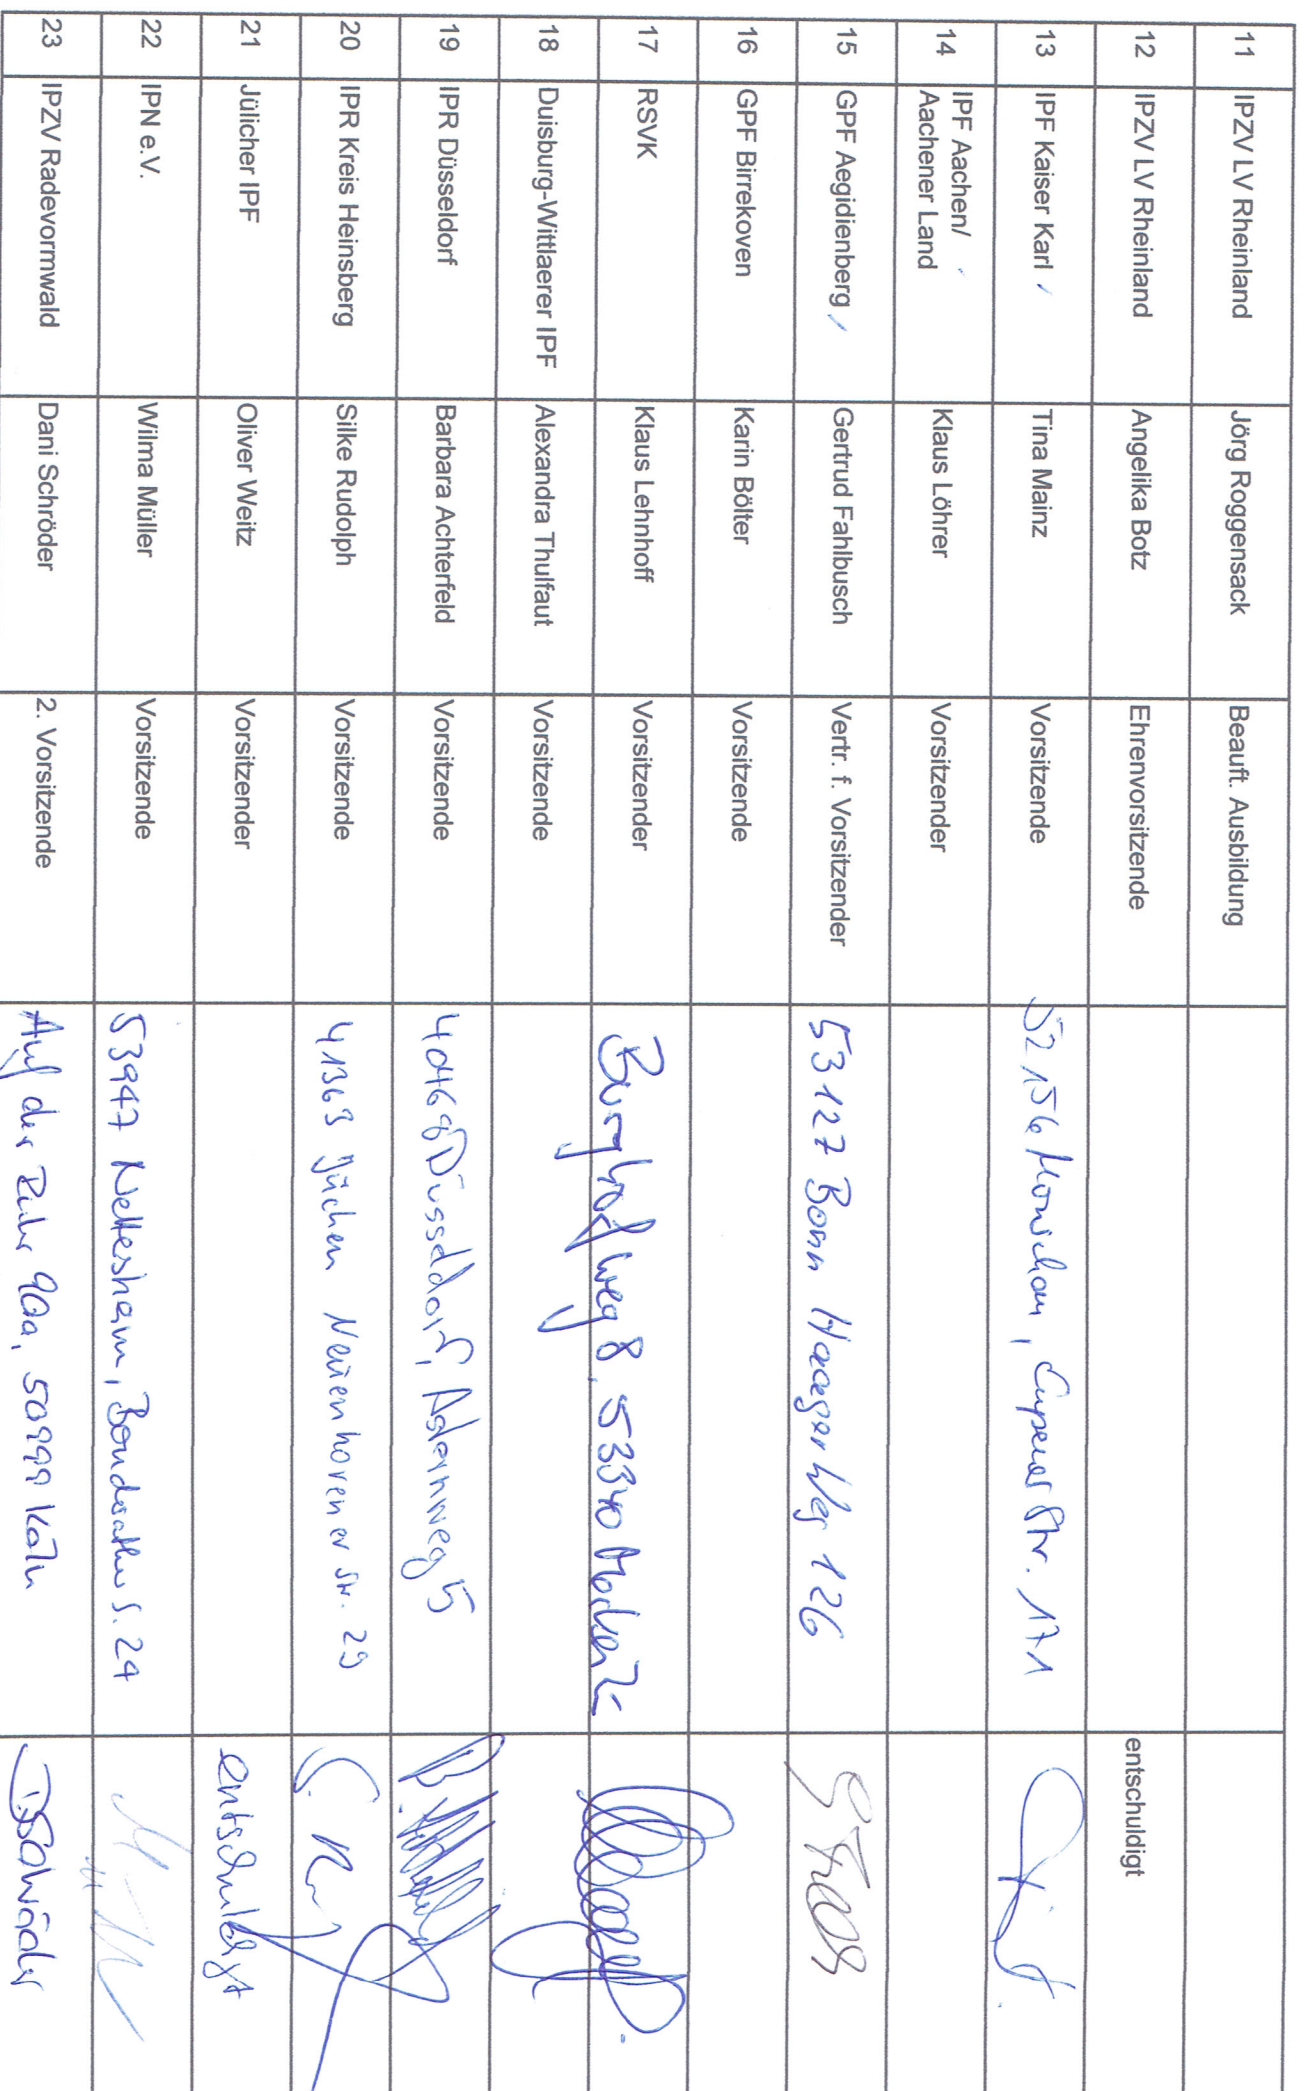 11 IPZV LV Rheinland Jörg Roggensack Beauft. Ausbildung
12 IPZV LV Rheinland Angelika Botz Ehrenvorsitzende entschuldigt
13 IPF Kaiser Karl Tina Mainz Vorsitzende 52156 Monschau, Eupener Str. 171
14 IPF Aachen/
Aachener Land Klaus Löhrer Vorsitzender
15 GPF Aegidienberg Gertrud Fahlbusch Vertr. f. Vorsitzender 53127 Bonn Haager Weg 126
16 GPF Birrekoven Karin Bölter Vorsitzende
17 RSVK Klaus Lehnhoff Vorsitzender Burghofweg 8, 53340
18 Duisburg-Wittlaerer IPF Alexandra Thulfaut Vorsitzende
19 IPR Düsseldorf Barbara Achterfeld Vorsitzende 40468 Düsseldorf, Asternweg 5
20 IPR Kreis Heinsberg Silke Rudolph Vorsitzende 41363 Jüchen Neuenhovener Str. 29
21 Jülicher IPF Oliver Weitz Vorsitzender entschuldigt
22 IPN e.V. Wilma Müller Vorsitzende 53947 Nettersheim, 24
23 IPZV Radevormwald Dani Schröder 2. Vorsitzende Auf der 90a, 50999 Köln D. Schröder